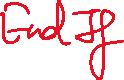 End If